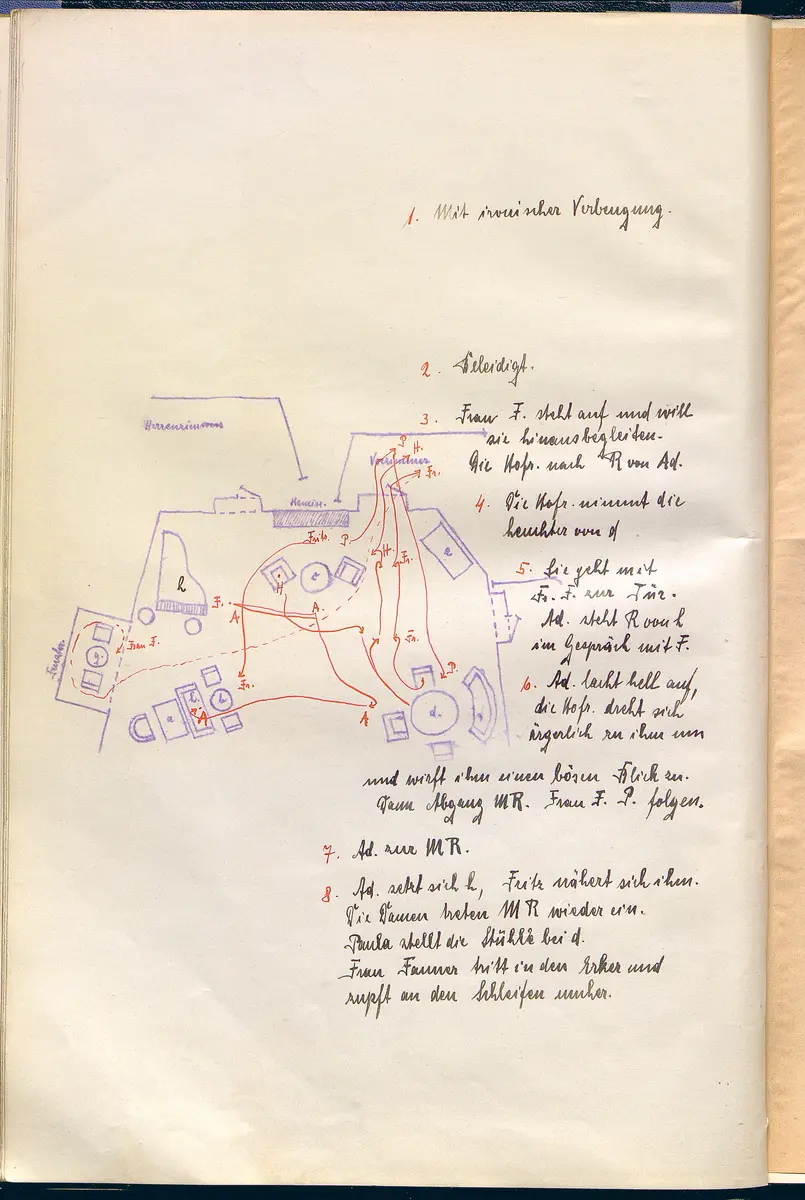 1. Mit ironischer Verbeugung.
2. Beleidigt.
3. Frau F. steht auf und will
sie hinausbegleiten.
Die Hofr. nach R von Ad.
4. Die Hofr. nimmt die
von d
5. Sie geht mit
Fr. F. zur Tür.
Ad. steht R von h
im Gespräch mit F.
6. Ad. lacht hell auf,
die Hofr. dreht sich
ärgerlich zu ihm um
und wirft ihm einen bösen Blick zu.
Dann Abgang MR. Frau F. P. folgen.
7. Ad. zur MR.
8. Ad. setzt sich h, Fritz nähert sich ihm.
Die Damen treten MR wieder ein.
Paula stellt die Stühle bei d.
Frau Fanner tritt in den Erker und
zupft an den Schleifen umher.
Herrenzimmer
Vorzimmer
P.
H.
Fr.
Kamin.
Fritz
P.
H.
Fr.
e
h
H
c
F.
A
A.
Fenster
g.
Frau F.
Fr.
Fr.
P.
a
b
A
A
d.